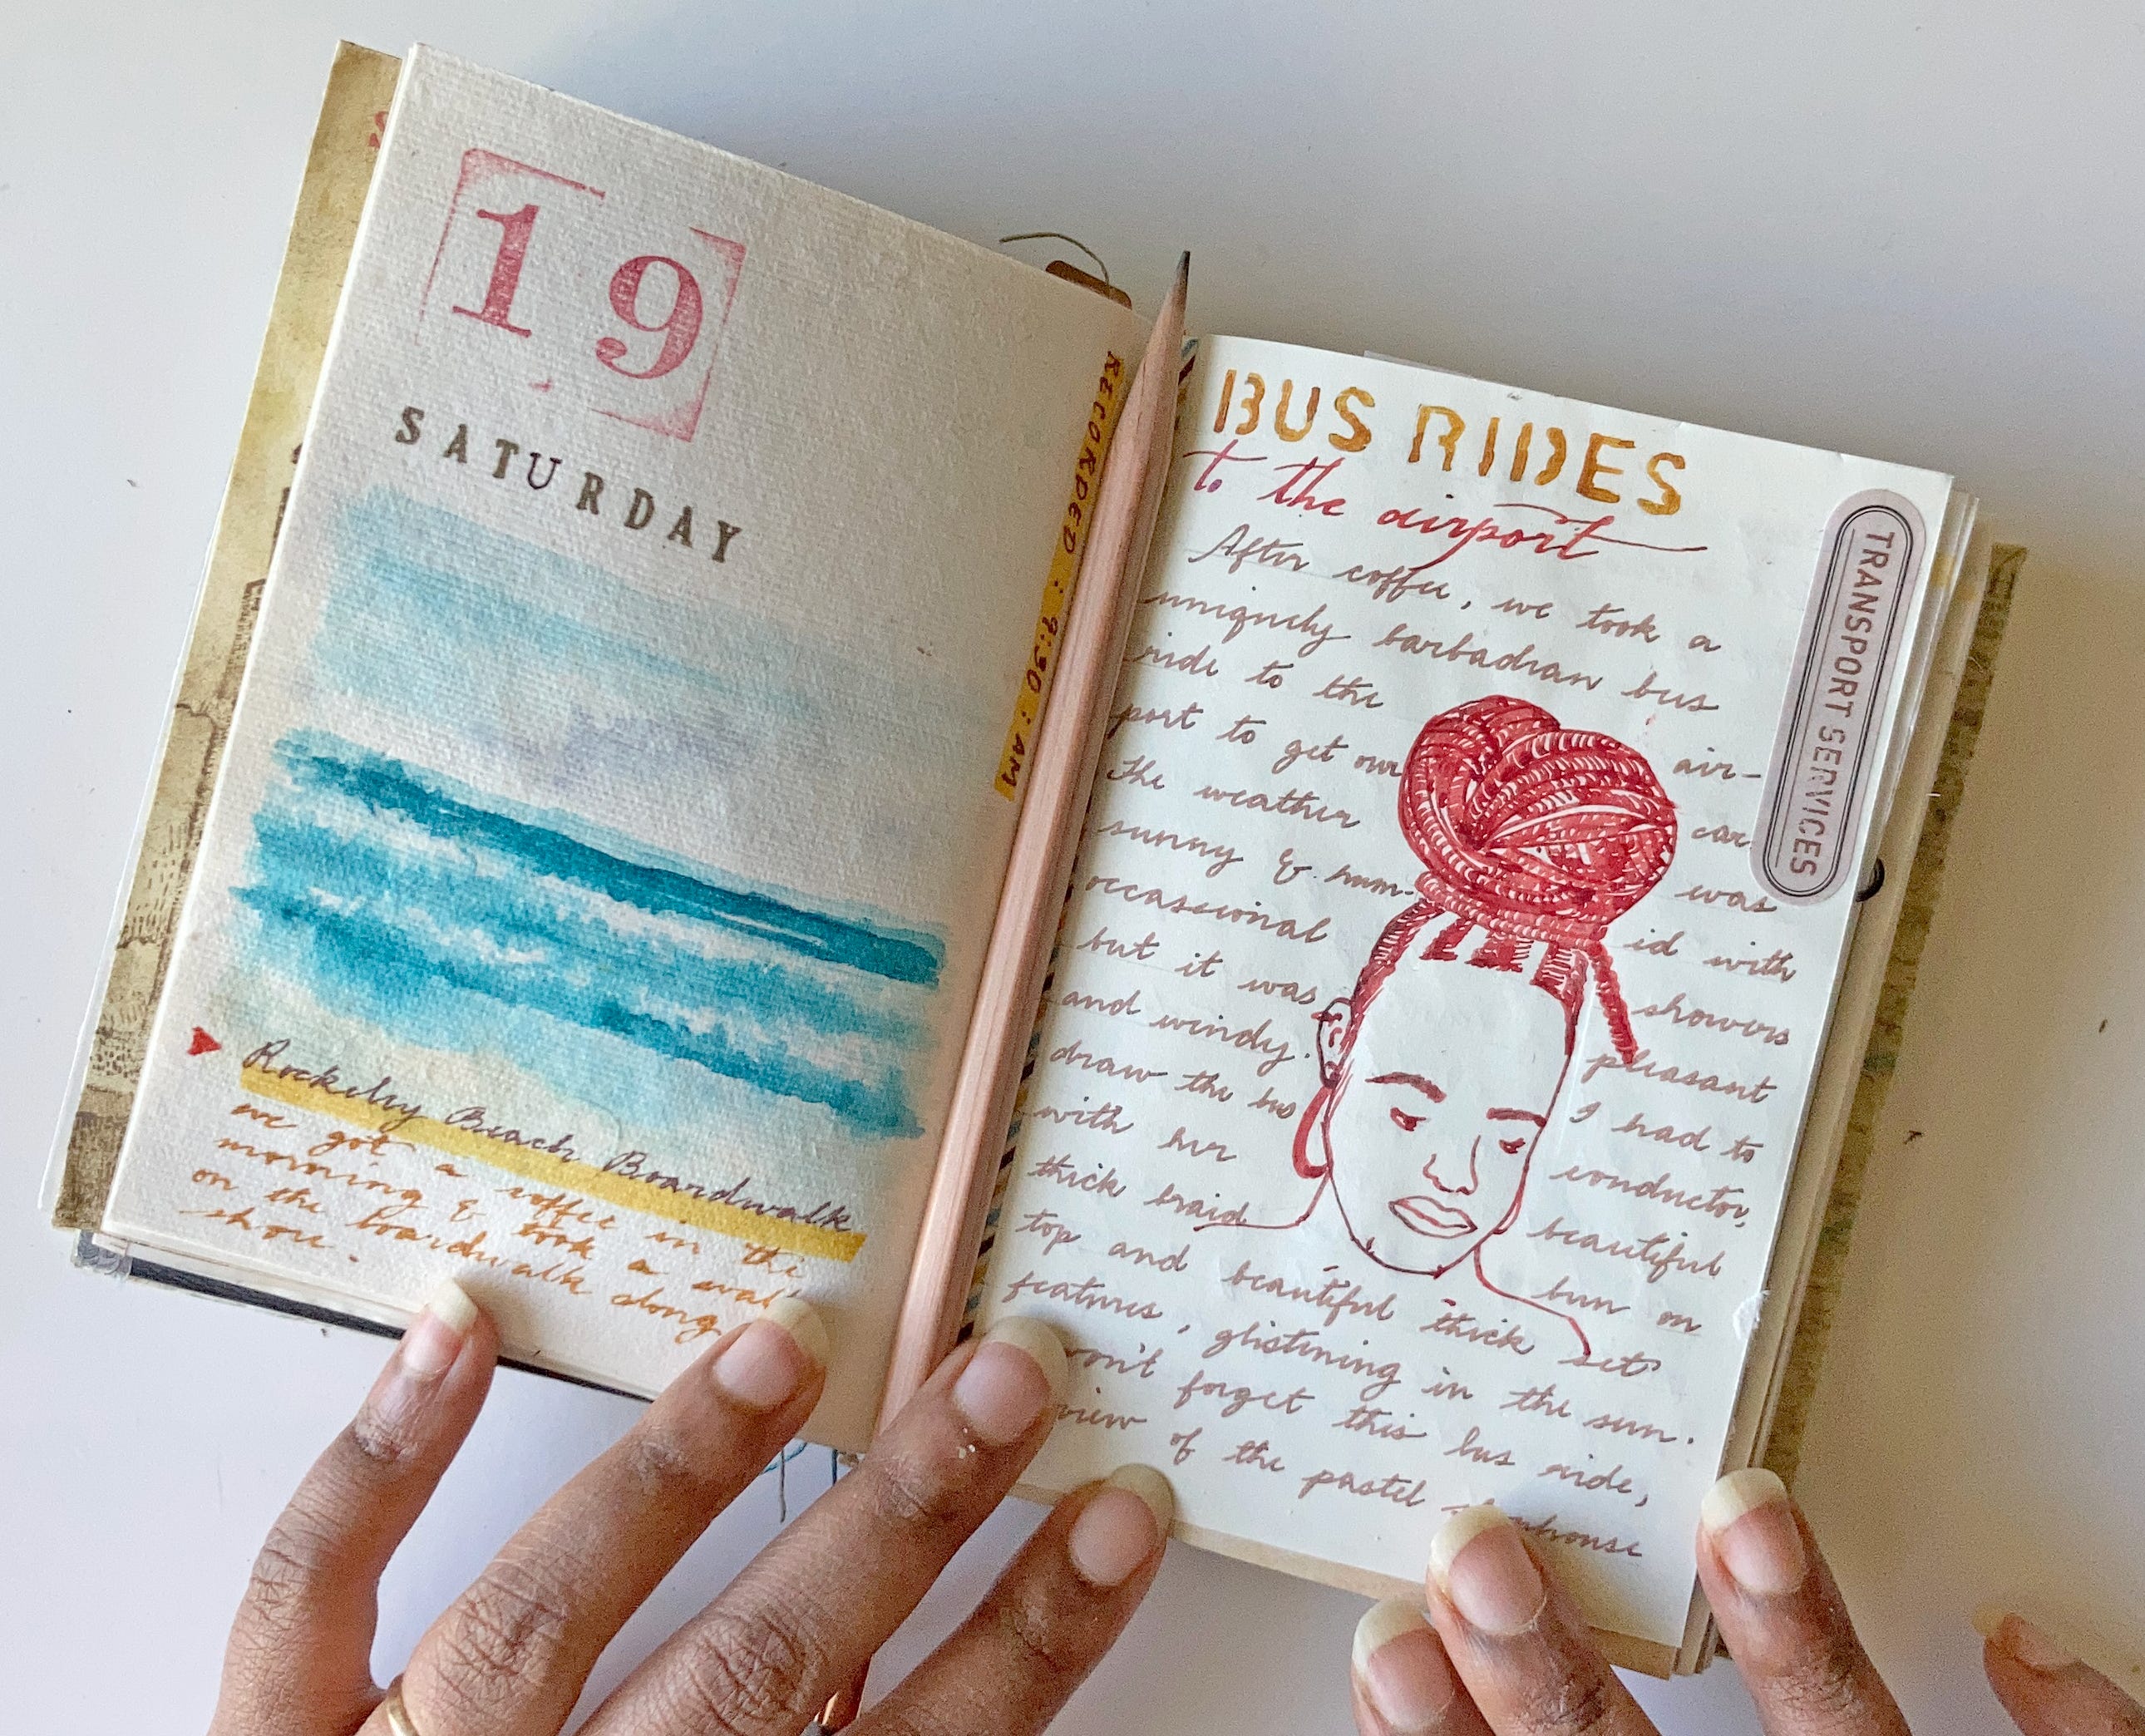 19
SATURDAY
RECORDED : 9:30 : AM
Rockeley Beach Boardwalk
we got a coffee in the
morning & took a walk
on the boardwalk along
shore.
BUS RIDES
to the airport
TRANSPORT SERVICES
After coffee, we took a
uniquely barbadian bus
ride to the air-
port to get our car
The weather was
sunny & hum- id with
occassional showers
but it was pleasant
and windy. I had to
draw the bus conductor,
with her beautiful
thick braid bun on
top and beautiful thick set
features, glistining in the sun.
won't forget this bus ride,
view of the pastel